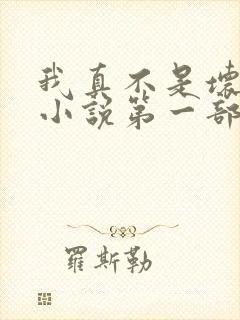 我真不是壞
小說第一部
羅斯勒